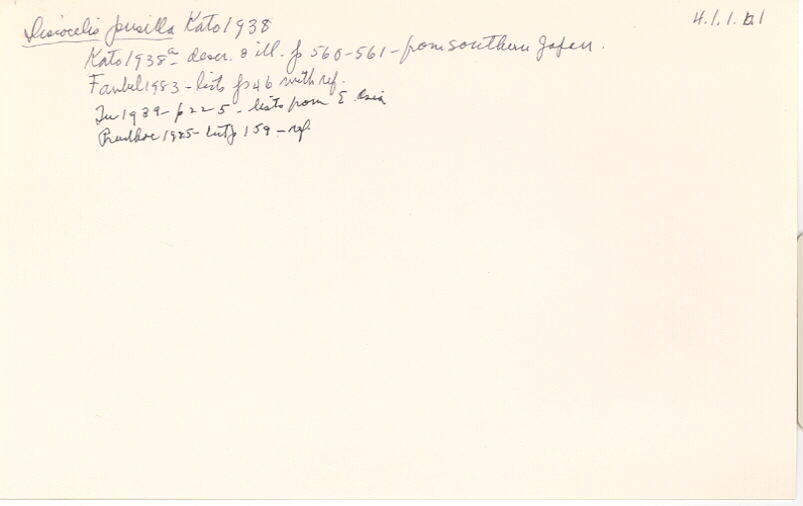 Discocelis pusilla Kato 1938 4.1.1.b.1
Kato 1938a - descr. & ill. p 560-561 - from southern Japan.
Faubel 1983 - lists p 46 with ref.
Tu 1939 - p 225 - lists from E Asia
Prudhoe 1985 - list p 159 - ref.